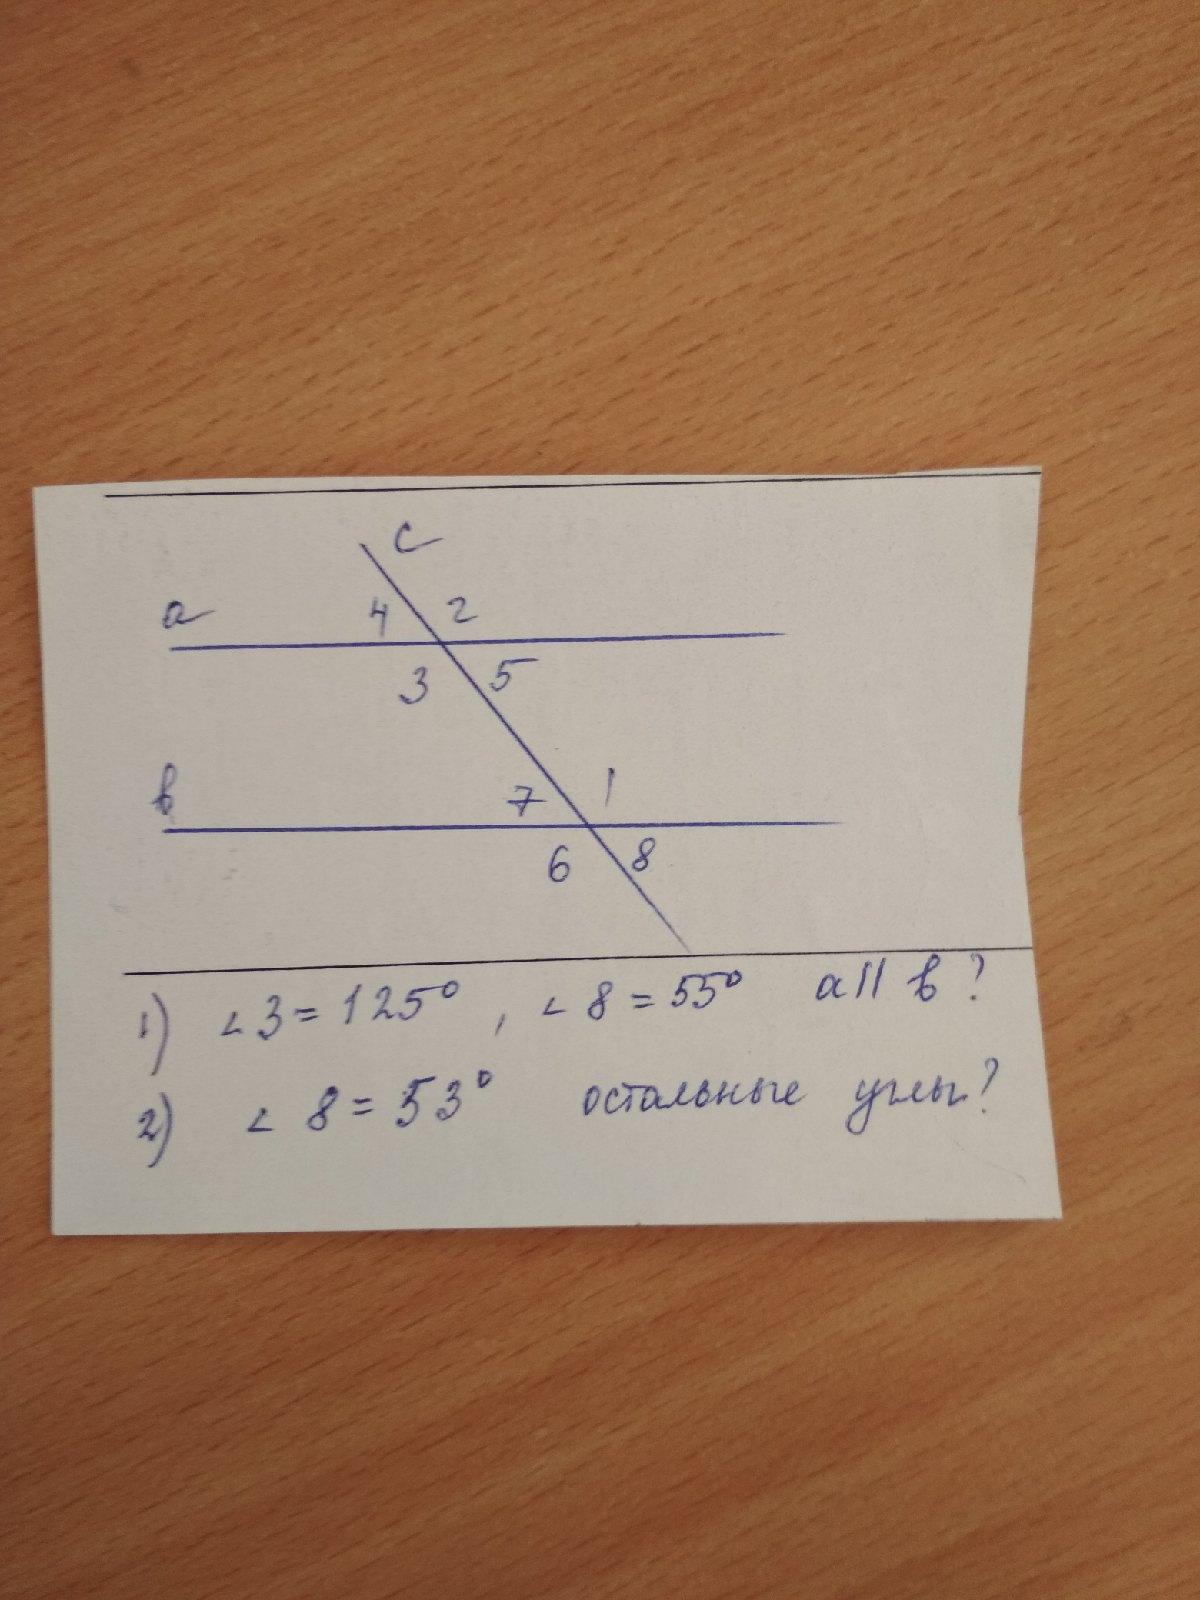 c
a 4 2
3 5
в 7 1
6 8
1) ∠3 = 125°, ∠8 = 55° a || в ?
2) ∠8 = 53° остальные углы?